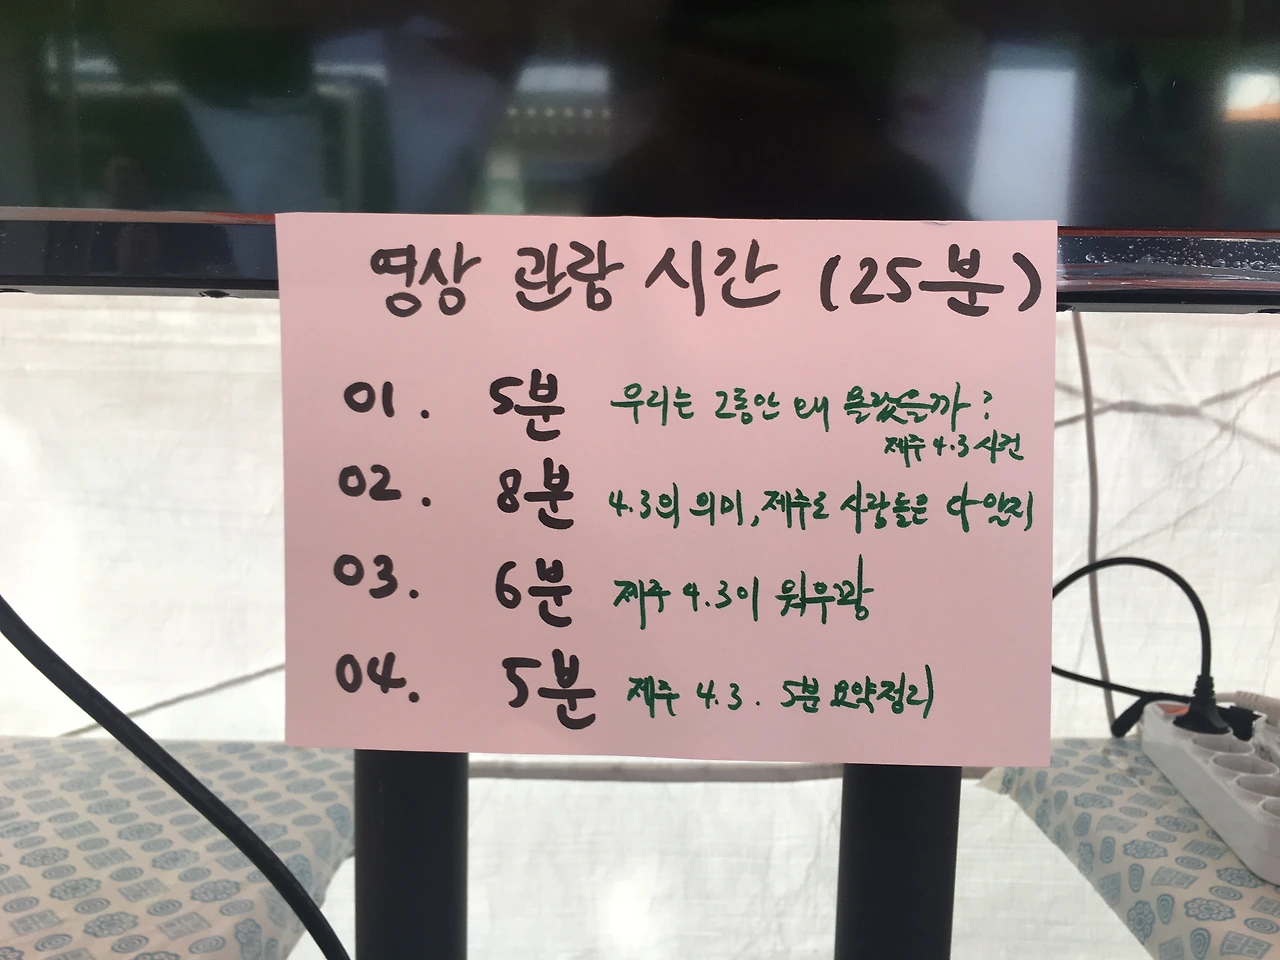 영상 관람 시간 (25분)
01. 5분 우리는 그동안 왜 몰랐을까?
제주 4.3 사건
02. 8분 4.3의 의미, 제주도 사람들은 다 알지
03. 6분 제주 4.3이 뭐우꽈
04. 5분 제주 4.3. 5분 요약정리